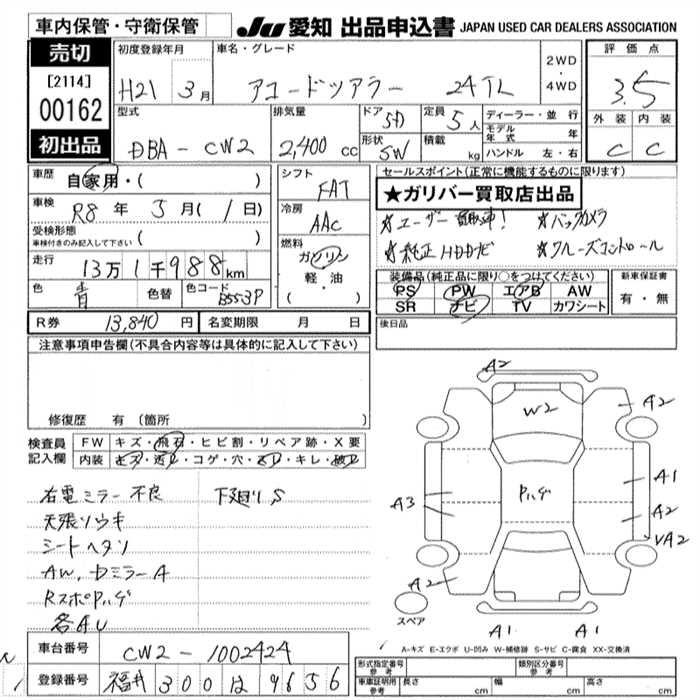 車内保管・守衛保管
JU 愛知 出品申込書 JAPAN USED CAR DEALERS ASSOCIATION
売切
[2114]
00162
初出品
初度登録年月 H21 3月
車名・グレード アコードツアラー 24TL
2WD ・ 4WD
評価点 3.5
外装 内装
C C
型式 DBA-CW2
排気量 2,400 cc
ドア 5D
定員 5人
形状 SW
積載 kg
ディーラー・並行
モデル年式 年
ハンドル 左・右
車歴 自家用・( )
車検 R8年 3月( 1日)
受検形態 ( )
車検付きのみ記入して下さい
走行 13万1千988km
色 青 色替 色コード B553P
シフト FAT
冷房 AAC
燃料 ガソリン
軽・油
( )
セールスポイント(正常に機能するものに限ります)
★ガリバー買取店出品
☆ユーザー買取車! ☆バックカメラ
☆純正HDDナビ ☆クルーズコントロール
装備品(純正品に限り○をつけてください)
PS PW エアB AW
SR ナビ TV カワシート
新車保証書
有・無
R券 13,840円 名変期限 月 日
後日品
注意事項申告欄(不具合内容等は具体的に記入して下さい)
修復歴 有 (箇所 )
検査員記入欄
FW キズ・飛石・ヒビ割・リペア跡・X要
内装 キズ・汚レ・コゲ・穴・スレ・キレ・破レ
右電ミラー不良 下廻りS
天張りウキ
シートヘタリ
AW, ドミラーA
RスポPハゲ
各AU
A2
W2
A2
Pハゲ
A3
A1
A2
VA2
A2
A1 A1
スペア
A-キズ E-エクボ U-凹み W-補修跡 S-サビ C-腐食 XX-交換済
車台番号 CW2-1002424
登録番号 福井 300 は 9656
形式指定番号 参考
類別区分番号 参考
車庫証明用 参考 長さ cm 幅 cm 高さ cm